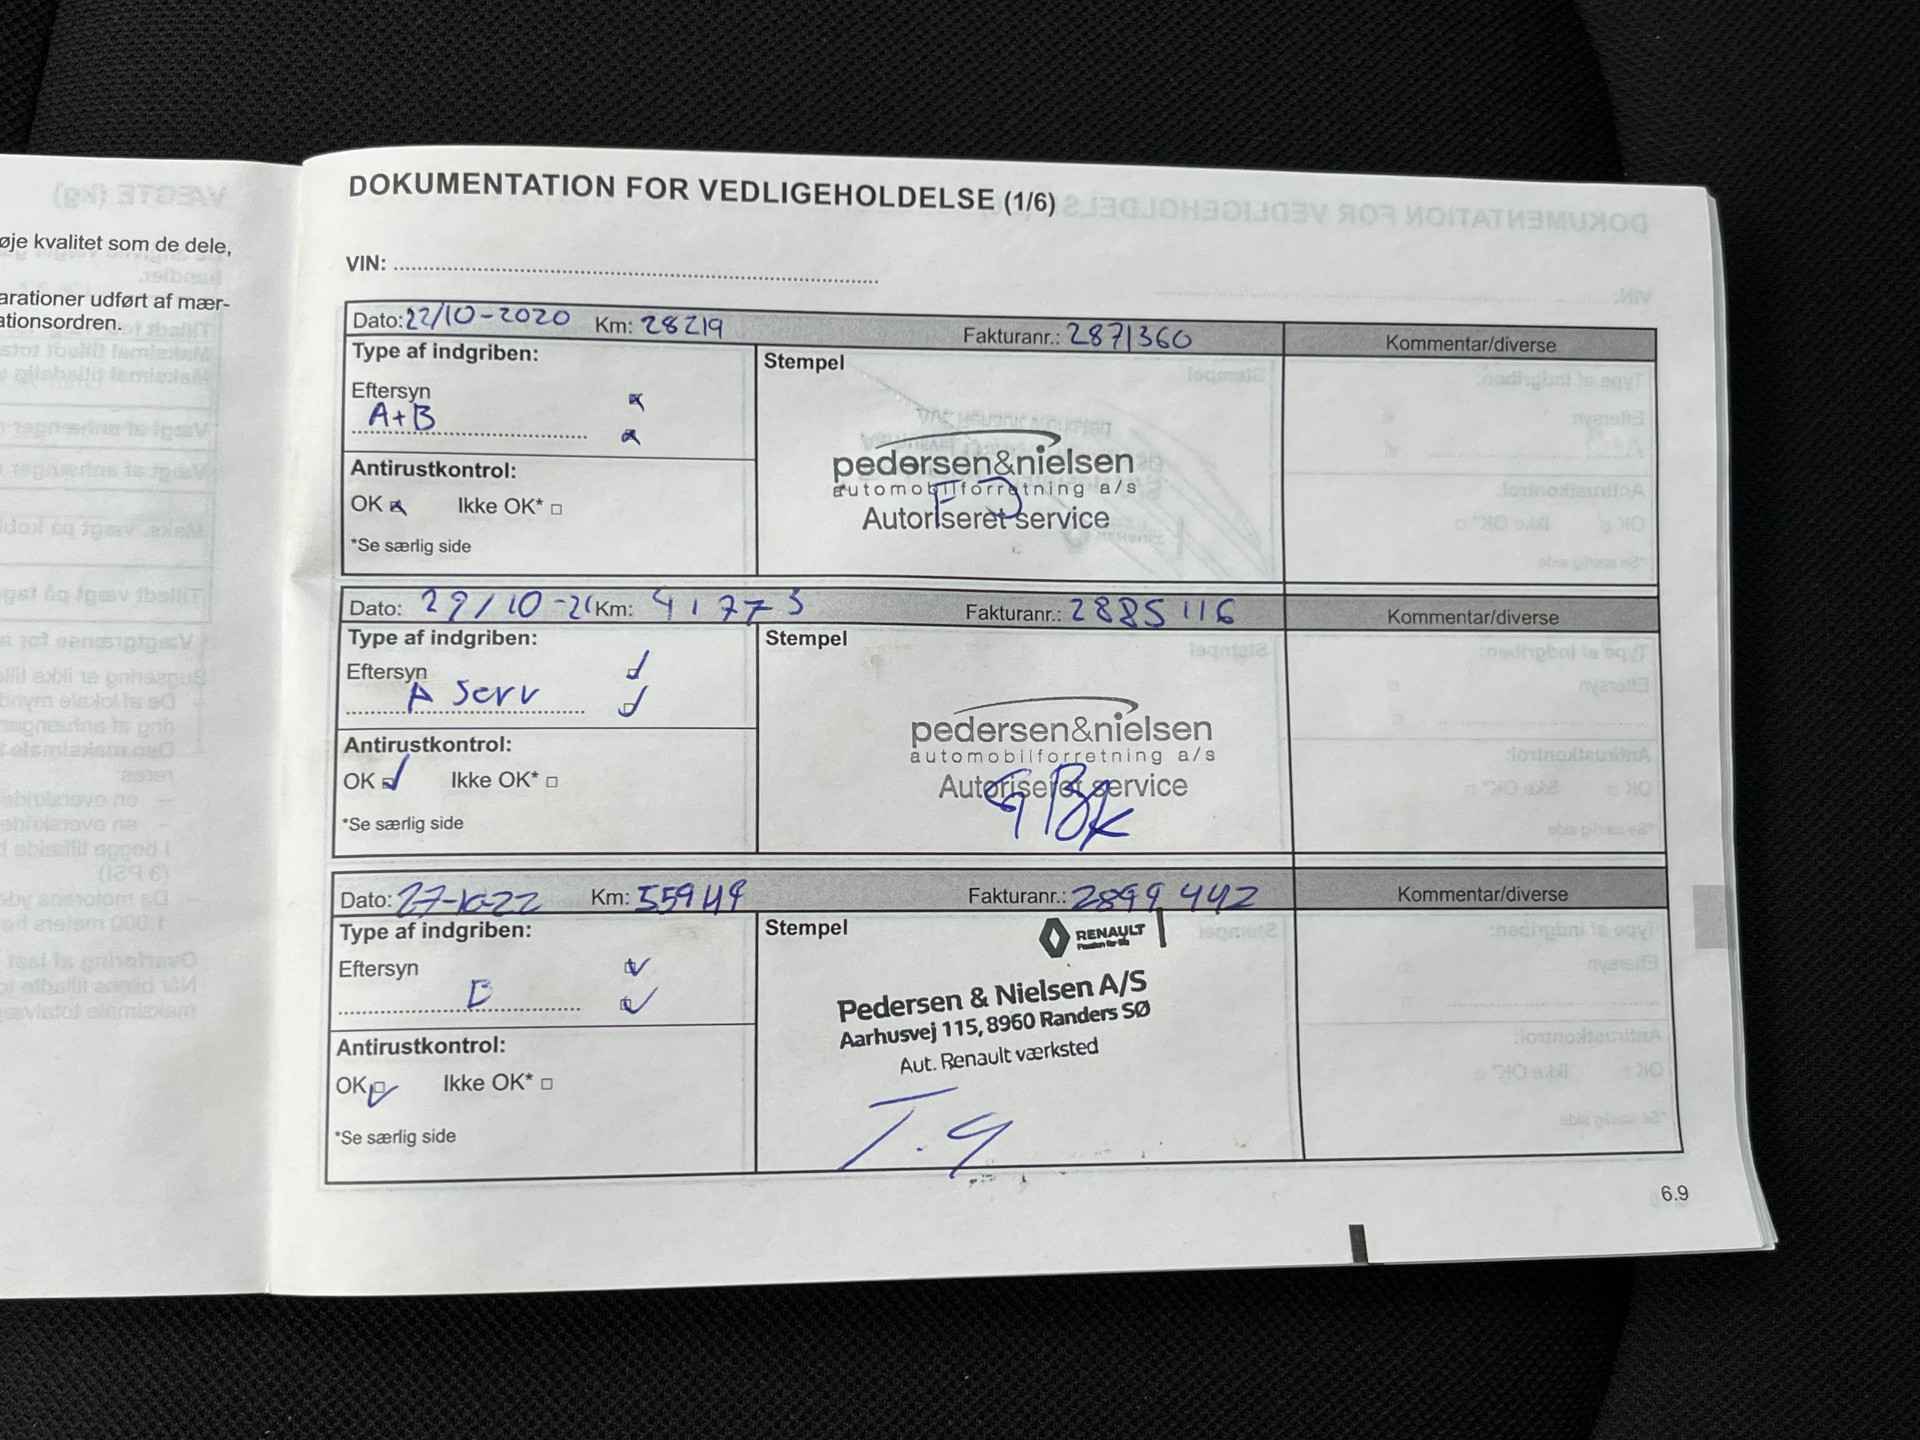 øje kvalitet som de dele,
arationer udført af mær-
ationsordren.
DOKUMENTATION FOR VEDLIGEHOLDELSE (1/6)
VIN:
Dato: 22/10-2020 Km: 28219 Fakturanr.: 2871360 Kommentar/diverse
Type af indgriben: Stempel
Eftersyn
A+B
pedersen&nielsen
automobilforretning a/s
Autoriseret service
Antirustkontrol:
OK Ikke OK*
*Se særlig side
Dato: 29/10-21 Km: 41773 Fakturanr.: 2885116 Kommentar/diverse
Type af indgriben: Stempel
Eftersyn
A Serv
pedersen&nielsen
automobilforretning a/s
Autoriseret service
Antirustkontrol:
OK Ikke OK*
*Se særlig side
Dato: 27-10-22 Km: 55949 Fakturanr.: 2899442 Kommentar/diverse
Type af indgriben: Stempel
RENAULT
Eftersyn
Pedersen & Nielsen A/S
Aarhusvej 115, 8960 Randers SØ
Aut. Renault værksted
Antirustkontrol:
OK Ikke OK*
*Se særlig side
6.9